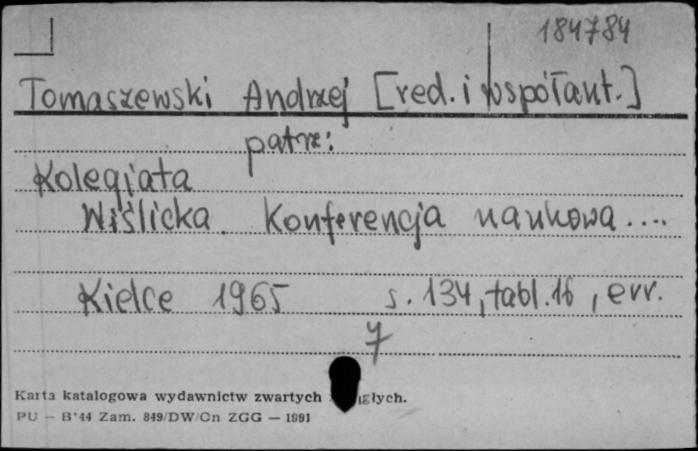 184784
Tomaszewski Andrzej [red. i współaut.]
patrz:
Kolegiata
Wiślicka. Konferencja naukowa....
Kielce 1965 s. 134, tabl. 16, err.
7
Karta katalogowa wydawnictw zwartych głych.
PU — B'44 Zam. 849/DW/Cn ZGG — 1991